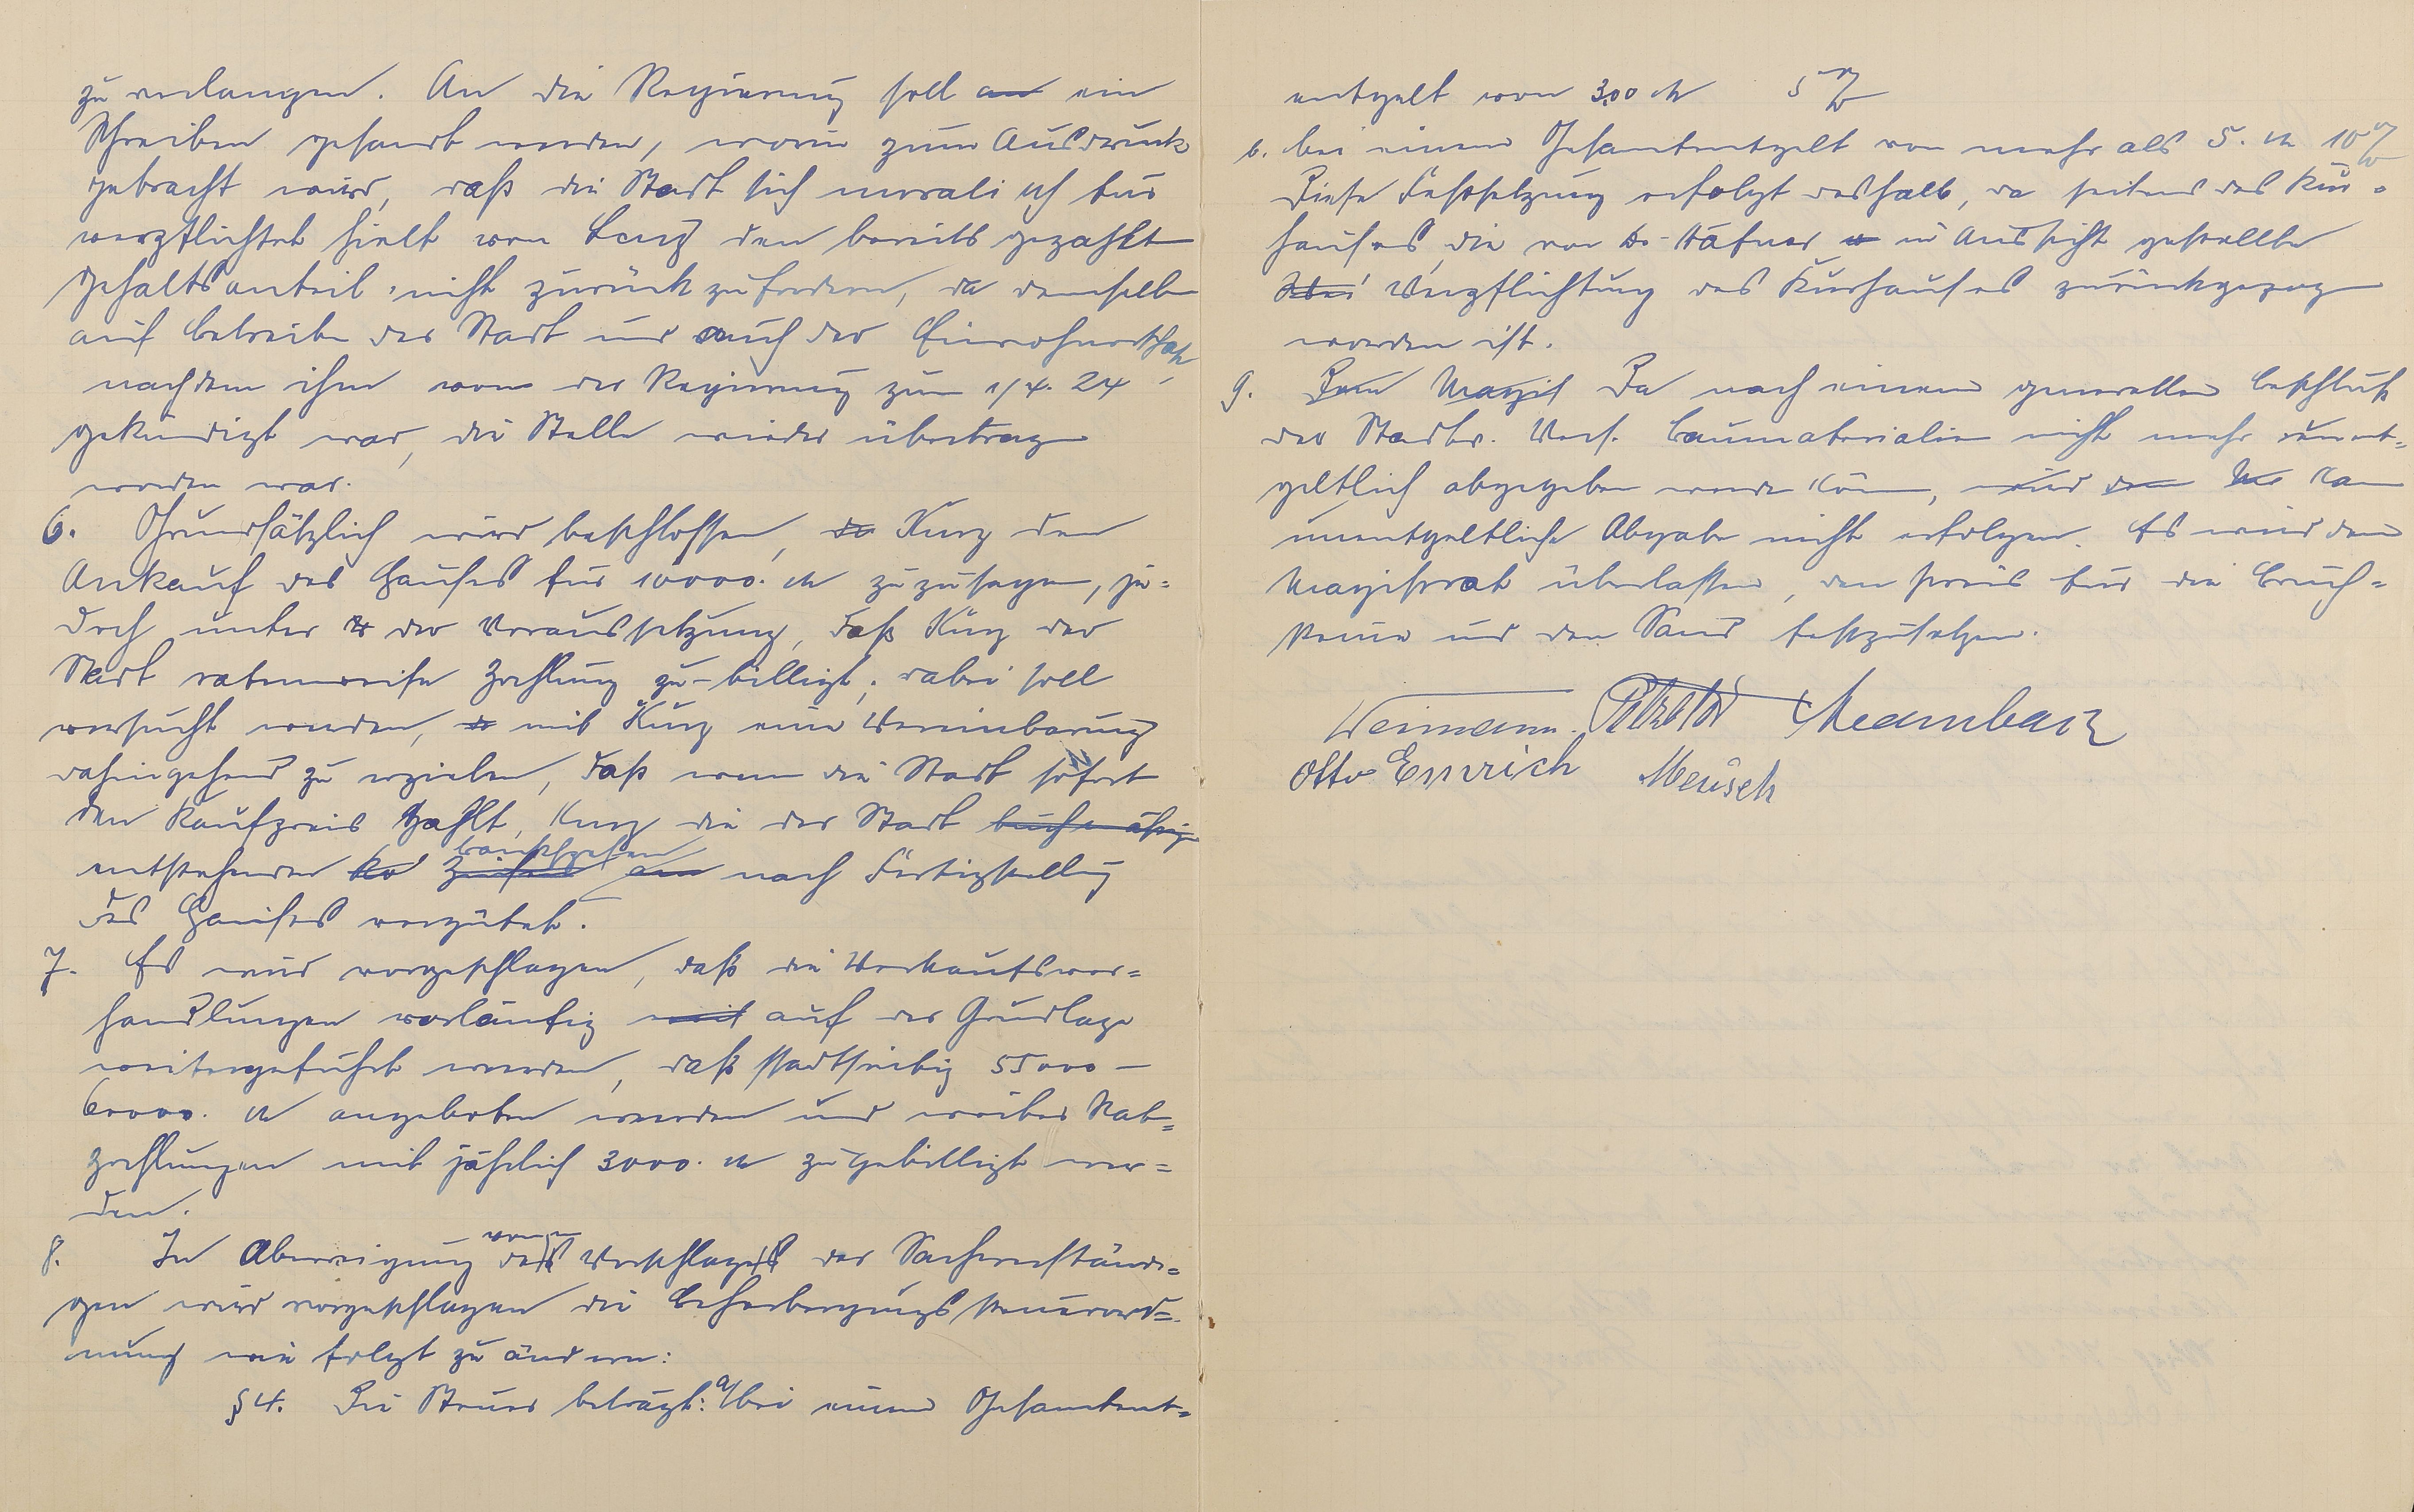 zu verlangen. An die Regierung soll an ein
Schreiben gesandt werden, worin zum Ausdruck
gebracht wird, daß die Stadt sich moralisch für
verpflichtet hielt von Lenz den bereits gezahlt
Gehaltsanteil nicht zurück zu fordern, da demselben
auf Betreiben der Stadt und auch der Einwohnerschaft,
nachdem ihm von der Regierung zum 1/4. 24
gekündigt war, die Stelle wieder übertrag
worden war.
6. Grundsätzlich wird beschlossen, de Kurz den
Ankauf des Hauses für 10000. M zuzusagen, je=
doch unter der Voraussetzung, daß Kurz der
Stadt ratenweise Zahlung zu-billigt; dabei soll
versucht werden, mit Kurz eine Vereinbarung
dahingehend zu erzielen, daß wenn die Stadt sofort
den Kaufpreis zahlt, Kurz die der Stadt buchmäßig
entstehenden Ko Zinsen Bankspesen nach Fertigstellung
des Hauses vergütet.
7. Es wird vorgeschlagen, daß die Verkaufsver=
handlungen vorläufig mit auf der Grundlage
weitergeführt werden, daß stadtseitig 55000 –
60000. M angeboten werden und weiter Rat=
zahlungen mit jährlich 3000. M zugebilligt wer=
den.
8. In Abweigung vom des Vorschlages der Sachverständi=
gen wird vorgeschlagen die Beherbergungssteuerord=
nung wie folgt zu ändern:
§ 4. Die Steuer beträgt: a/ bei einem Gesamtent=
entgelt von 3,00 M 5 %
b. bei einem Gesamtentgelt von mehr als 5. M 10 %
Diese Festsetzung erfolgt deshalb, da seitens des Kur=
hauses, die von Dr. Häfner in Aussicht gestellte
Verpflichtung des Kurhauses zurückgezog
worden ist.
9. Dem Magist Da nach einem generellen Beschluß
der Stadtv. Vers. Baumaterialien nicht mehr unent=
geltlich abgegeben werde könn, wird dem Ma kan
unentgeltliche Abgabe nicht erfolgen. Es wird dem
Magistrat überlassen, den Preis für die Bruch=
steine und den Sand festzusetzen.
Weimann.
Otto Emrich Meusch